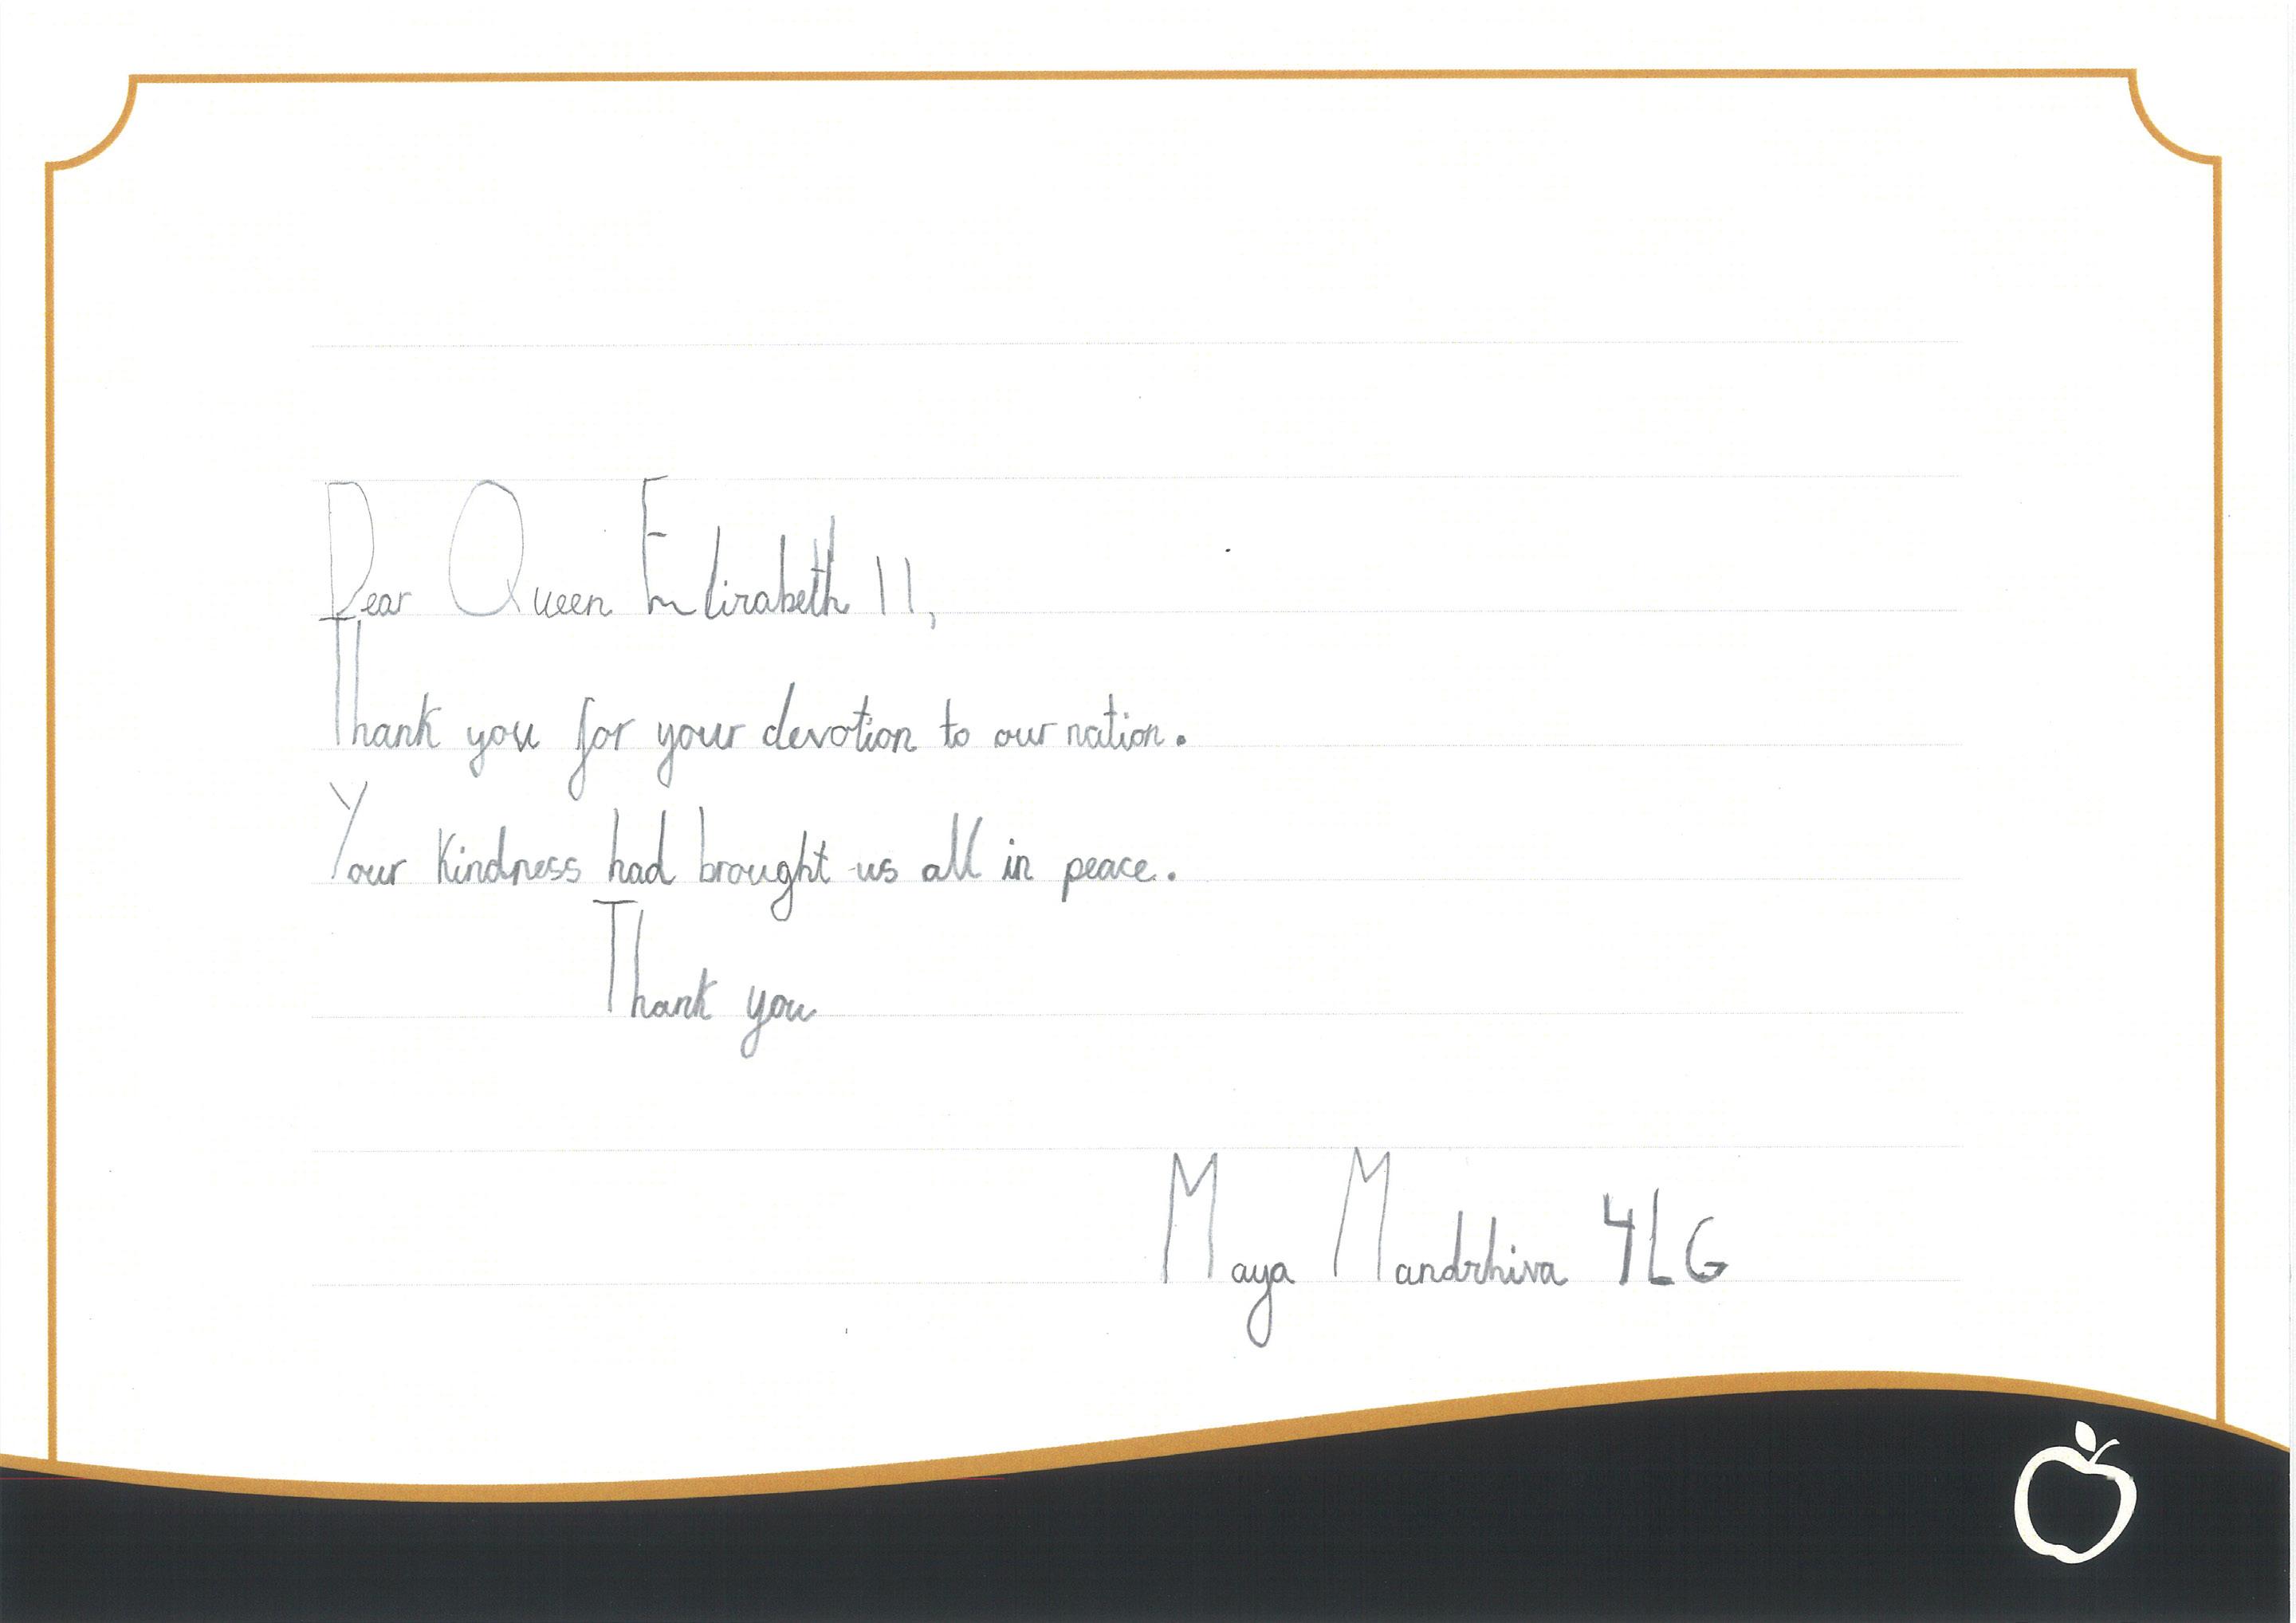 Dear Queen Elizabeth II,
Thank you for your devotion to our nation.
Your kindness had brought us all in peace.
Thank you
Maya Mandrhiva 4LG